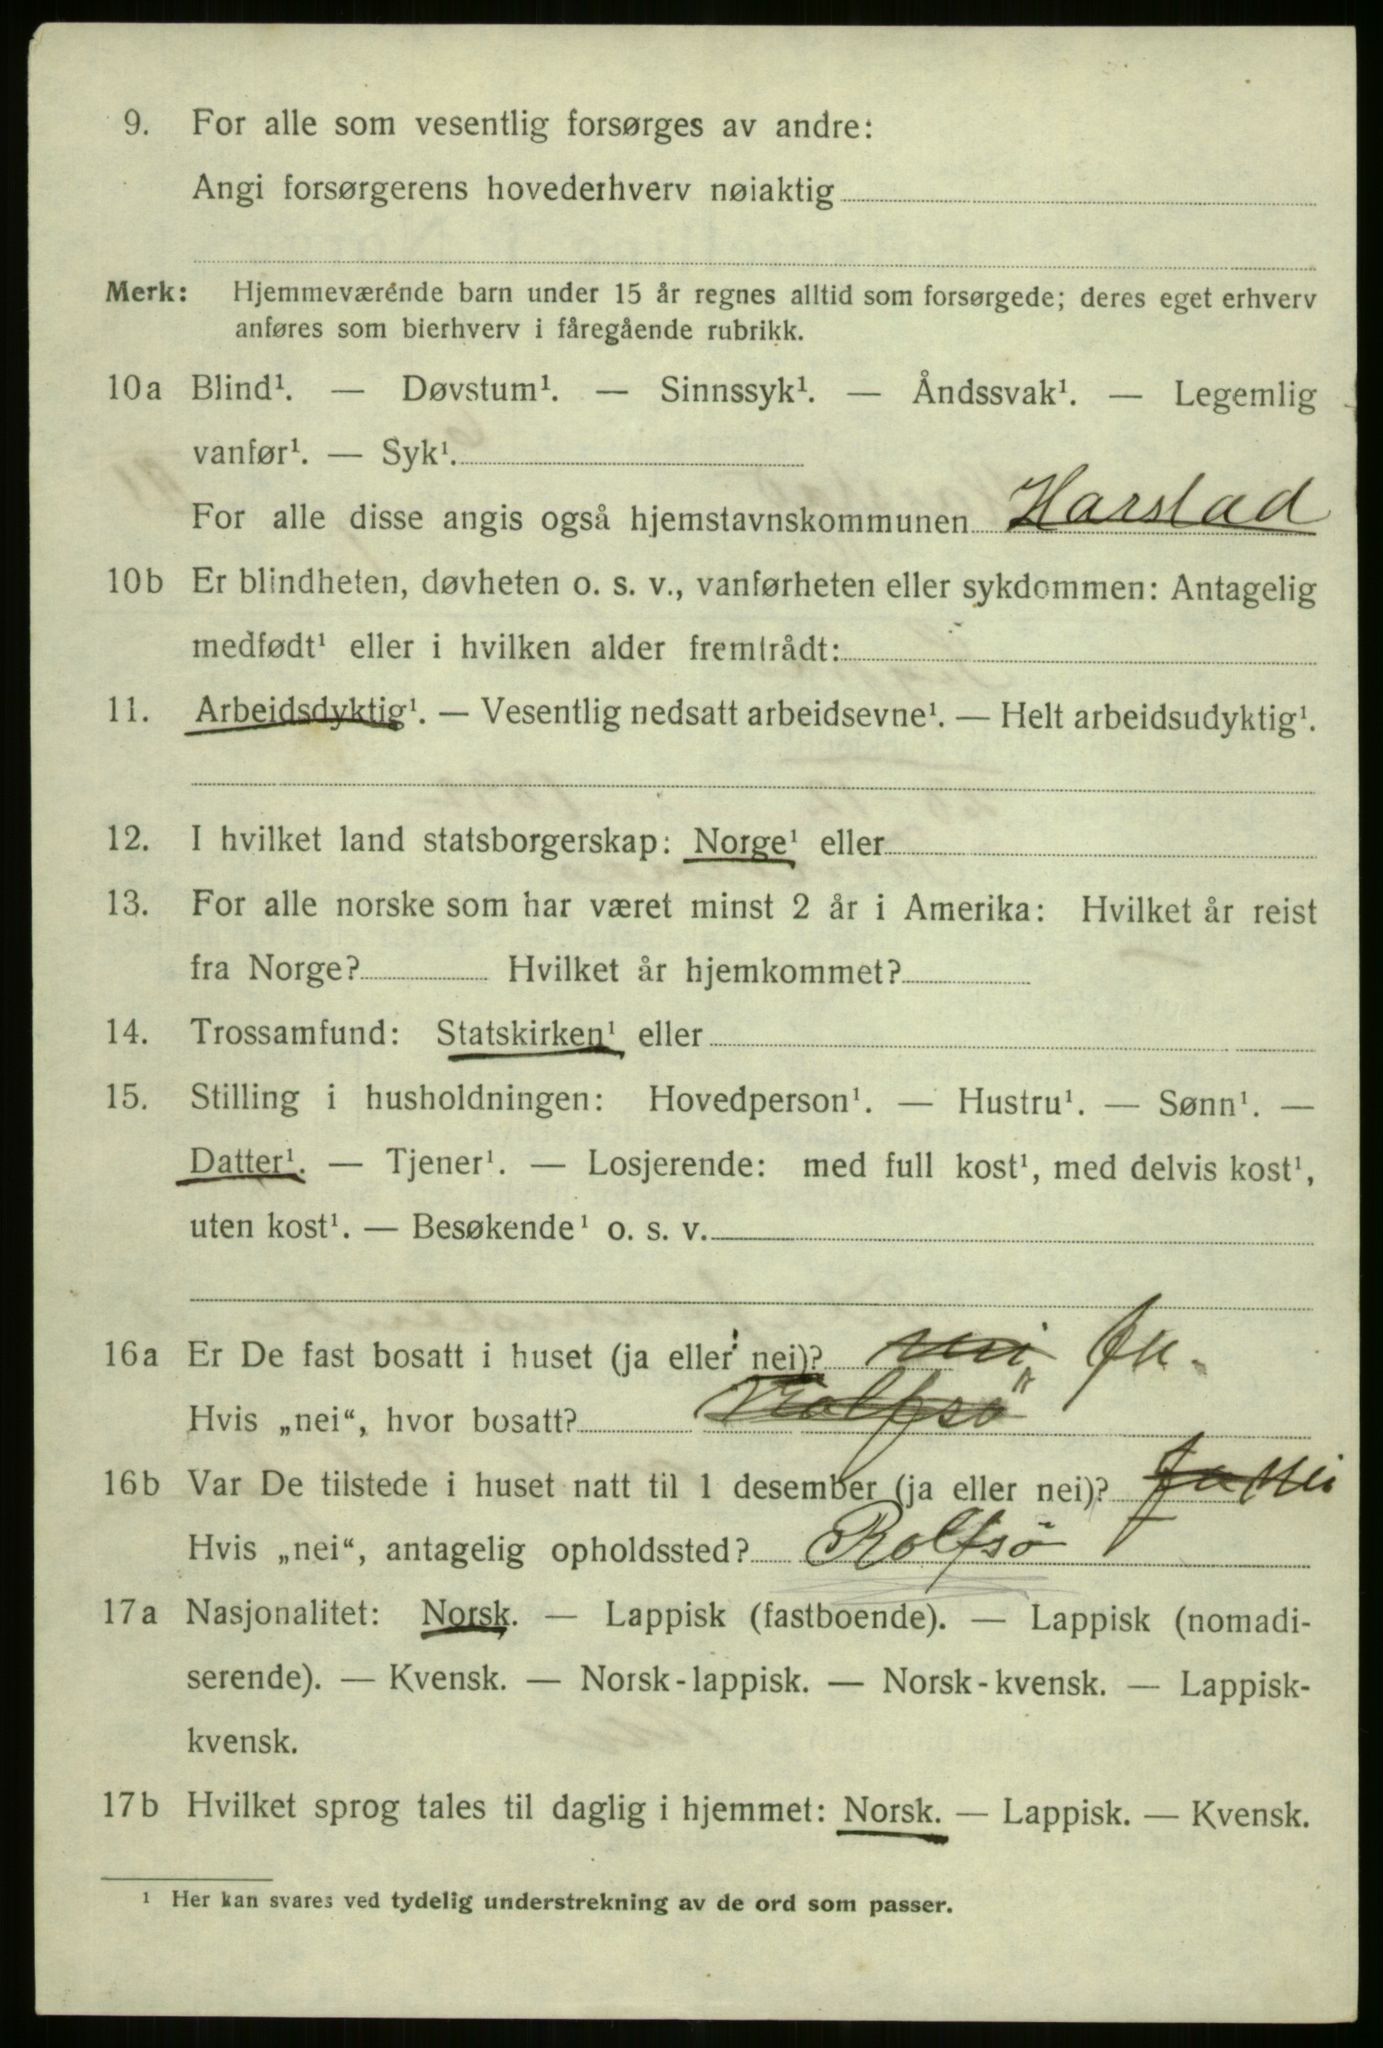 9. For alle som vesentlig forsørges av andre:
Angi forsørgerens hovederhverv nøiaktig
Merk: Hjemmeværende barn under 15 år regnes alltid som forsørgede; deres eget erhverv
anføres som bierhverv i fåregående rubrikk.
10a Blind¹. — Døvstum¹. — Sinnssyk¹. — Åndssvak¹. — Legemlig
vanfør¹. — Syk¹.
For alle disse angis også hjemstavnskommunen Harstad
10b Er blindheten, døvheten o. s. v., vanførheten eller sykdommen: Antagelig
medfødt¹ eller i hvilken alder fremtrådt:
11. Arbeidsdyktig¹. — Vesentlig nedsatt arbeidsevne¹. — Helt arbeidsudyktig¹.
12. I hvilket land statsborgerskap: Norge¹ eller
13. For alle norske som har været minst 2 år i Amerika: Hvilket år reist
fra Norge? Hvilket år hjemkommet?
14. Trossamfund: Statskirken¹ eller
15. Stilling i husholdningen: Hovedperson¹. — Hustru¹. — Sønn¹. —
Datter¹. — Tjener¹. — Losjerende: med full kost¹, med delvis kost¹,
uten kost¹. — Besøkende¹ o. s. v.
16a Er De fast bosatt i huset (ja eller nei)? nei Ja.
Hvis „nei“, hvor bosatt? Rolfsö
16b Var De tilstede i huset natt til 1 desember (ja eller nei)? Ja Nei
Hvis „nei“, antagelig opholdssted? Rolfsø
17a Nasjonalitet: Norsk. — Lappisk (fastboende). — Lappisk (nomadi-
serende). — Kvensk. — Norsk-lappisk. — Norsk-kvensk. — Lappisk-
kvensk.
17b Hvilket sprog tales til daglig i hjemmet: Norsk. — Lappisk. — Kvensk.
¹ Her kan svares ved tydelig understrekning av de ord som passer.